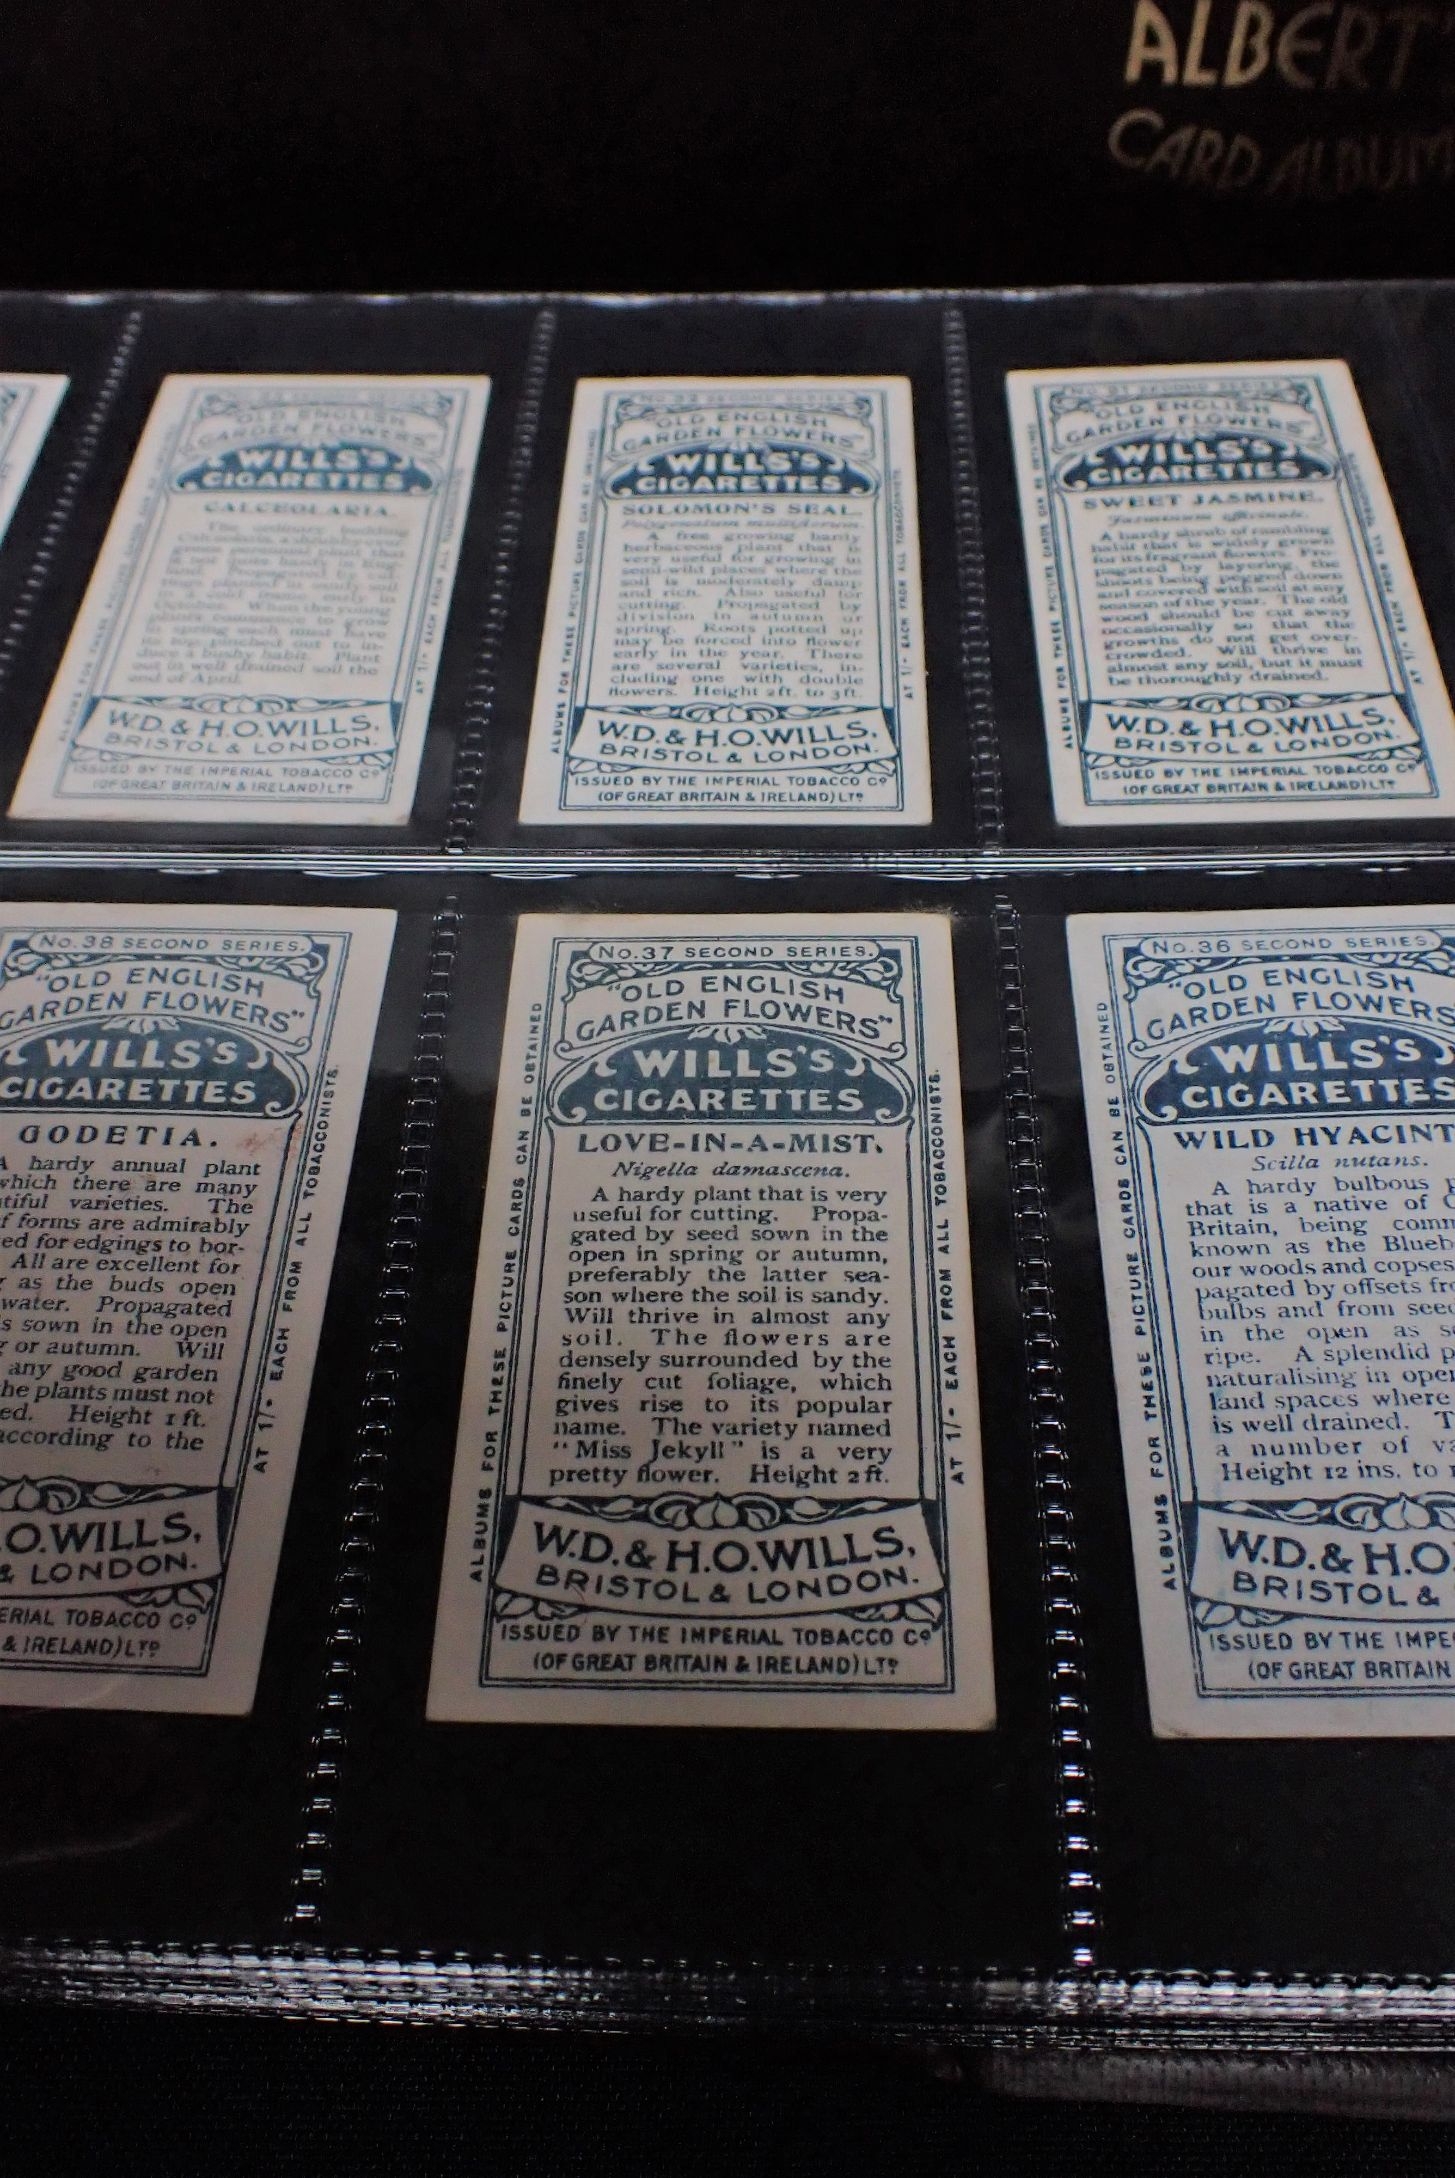 ALBERT'
CARD ALBUM
"OLD ENGLISH
GARDEN FLOWERS"
WILLS'S
CIGARETTES
CALCEOLARIA.
end of April.
W.D. & H.O. WILLS,
BRISTOL & LONDON.
ISSUED BY THE IMPERIAL TOBACCO Co
(OF GREAT BRITAIN & IRELAND) LTD
AT 1/- EACH FROM ALL
No. 32 SECOND SERIES.
"OLD ENGLISH
GARDEN FLOWERS"
WILLS'S
CIGARETTES
SOLOMON'S SEAL.
Polygonatum multiflorum.
A free growing hardy
herbaceous plant that is
very useful for growing in
semi-wild places where the
soil is moderately damp
and rich. Also useful for
cutting. Propagated by
division in autumn or
spring. Roots potted up
may be forced into flower
early in the year. There
are several varieties, in-
cluding one with double
flowers. Height 2 ft. to 3 ft.
W.D. & H.O. WILLS,
BRISTOL & LONDON.
ISSUED BY THE IMPERIAL TOBACCO Co
(OF GREAT BRITAIN & IRELAND) LTD
ALBUMS FOR THESE PICTURE CARDS CAN BE OBTAINED
AT 1/- EACH FROM ALL TOBACCONISTS.
No. 31 SECOND SERIES.
"OLD ENGLISH
GARDEN FLOWERS"
WILLS'S
CIGARETTES
SWEET JASMINE.
Jasminum officinale.
A hardy shrub of rambling
habit that is widely grown
for its fragrant flowers. Pro-
pagated by layering, the
shoots being pegged down
and covered with soil at any
season of the year. The old
wood should be cut away
occasionally so that the
growths do not get over-
crowded. Will thrive in
almost any soil, but it must
be thoroughly drained.
W.D. & H.O. WILLS,
BRISTOL & LONDON.
ISSUED BY THE IMPERIAL TOBACCO Co
(OF GREAT BRITAIN & IRELAND) LTD
ALBUMS FOR THESE PICTURE CARDS CAN BE OBTAINED
AT 1/- EACH FROM ALL TOBACCONISTS.
No. 38 SECOND SERIES.
"OLD ENGLISH
GARDEN FLOWERS"
WILLS'S
CIGARETTES
GODETIA.
A hardy annual plant
which there are many
tiful varieties. The
f forms are admirably
ed for edgings to bor-
All are excellent for
g as the buds open
water. Propagated
s sown in the open
g or autumn. Will
any good garden
he plants must not
ed. Height 1 ft.
according to the
.O. WILLS,
& LONDON.
ERIAL TOBACCO Co
& IRELAND) LTD
AT 1/- EACH FROM ALL TOBACCONISTS.
No. 37 SECOND SERIES.
"OLD ENGLISH
GARDEN FLOWERS"
WILLS'S
CIGARETTES
LOVE-IN-A-MIST.
Nigella damascena.
A hardy plant that is very
useful for cutting. Propa-
gated by seed sown in the
open in spring or autumn,
preferably the latter sea-
son where the soil is sandy.
Will thrive in almost any
soil. The flowers are
densely surrounded by the
finely cut foliage, which
gives rise to its popular
name. The variety named
"Miss Jekyll" is a very
pretty flower. Height 2 ft.
W.D. & H.O. WILLS,
BRISTOL & LONDON.
ISSUED BY THE IMPERIAL TOBACCO Co
(OF GREAT BRITAIN & IRELAND) LTD
ALBUMS FOR THESE PICTURE CARDS CAN BE OBTAINED
AT 1/- EACH FROM ALL TOBACCONISTS.
No. 36 SECOND SERIES.
"OLD ENGLISH
GARDEN FLOWERS
WILLS'S
CIGARETTES
WILD HYACINT
Scilla nutans.
A hardy bulbous p
that is a native of
Britain, being comm
known as the Blueb
our woods and copses
pagated by offsets fr
bulbs and from see
in the open as s
ripe. A splendid p
naturalising in ope
land spaces where
is well drained. T
a number of va
Height 12 ins. to
W.D. & H.O
BRISTOL &
ISSUED BY THE IMPE
(OF GREAT BRITAIN
ALBUMS FOR THESE PICTURE CARDS CAN BE OBTAINED